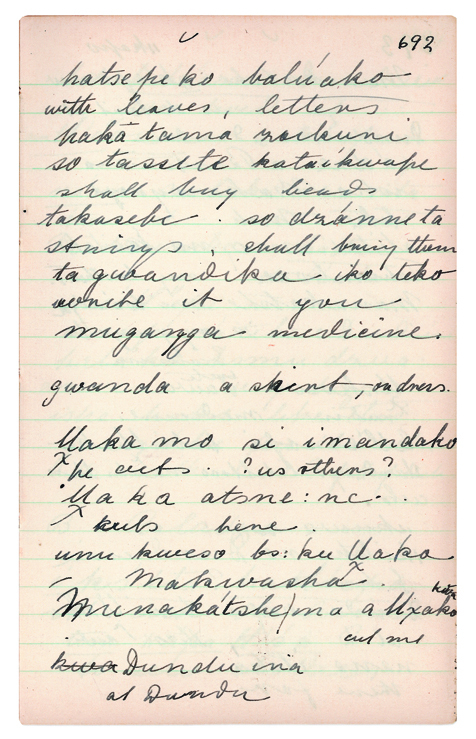 692
hatse pe ko balúako
with leaves, letters
hakā tama zwikuni
so tassete kataikwape
shall buy beads
takasebe. so dzánneta
strings, shall bury them
ta gwandika iko teko
write it you
mugaŋga medicine.
gwanda a skirt, or dress.
Uaka mo si imandako
he cuts. ? us others?
Uaka atsne: nc.
kubs hene.
unu kweso bs: ku Uaka
Makwasha.
Munakátshe/ma a Uxako
cut me
Dundu ina
at Dundu